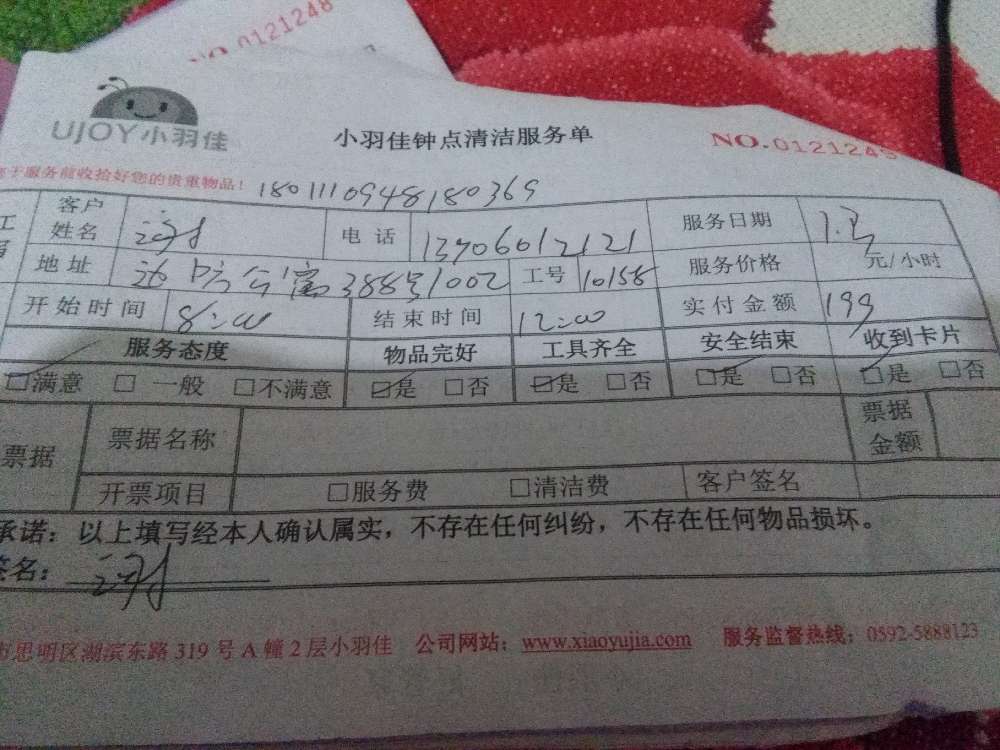 NO.0121248
UJOY小羽佳
小羽佳钟点清洁服务单
NO.0121249
于服务前收拾好您的贵重物品!
1801110948180369
客户姓名 电话 13906012121 服务日期
地址 388号1002 工号 10158 服务价格 元/小时
开始时间 8:00 结束时间 12:00 实付金额 199
服务态度 物品完好 工具齐全 安全结束 收到卡片
☑满意 □一般 □不满意 ☑是 □否 ☑是 □否 ☑是 □否 ☑是 □否
票据 票据名称 票据金额
开票项目 □服务费 □清洁费 客户签名
承诺：以上填写经本人确认属实，不存在任何纠纷，不存在任何物品损坏。
签名：
市思明区湖滨东路319号A幢2层小羽佳 公司网站：www.xiaoyujia.com 服务监督热线：0592-5888123